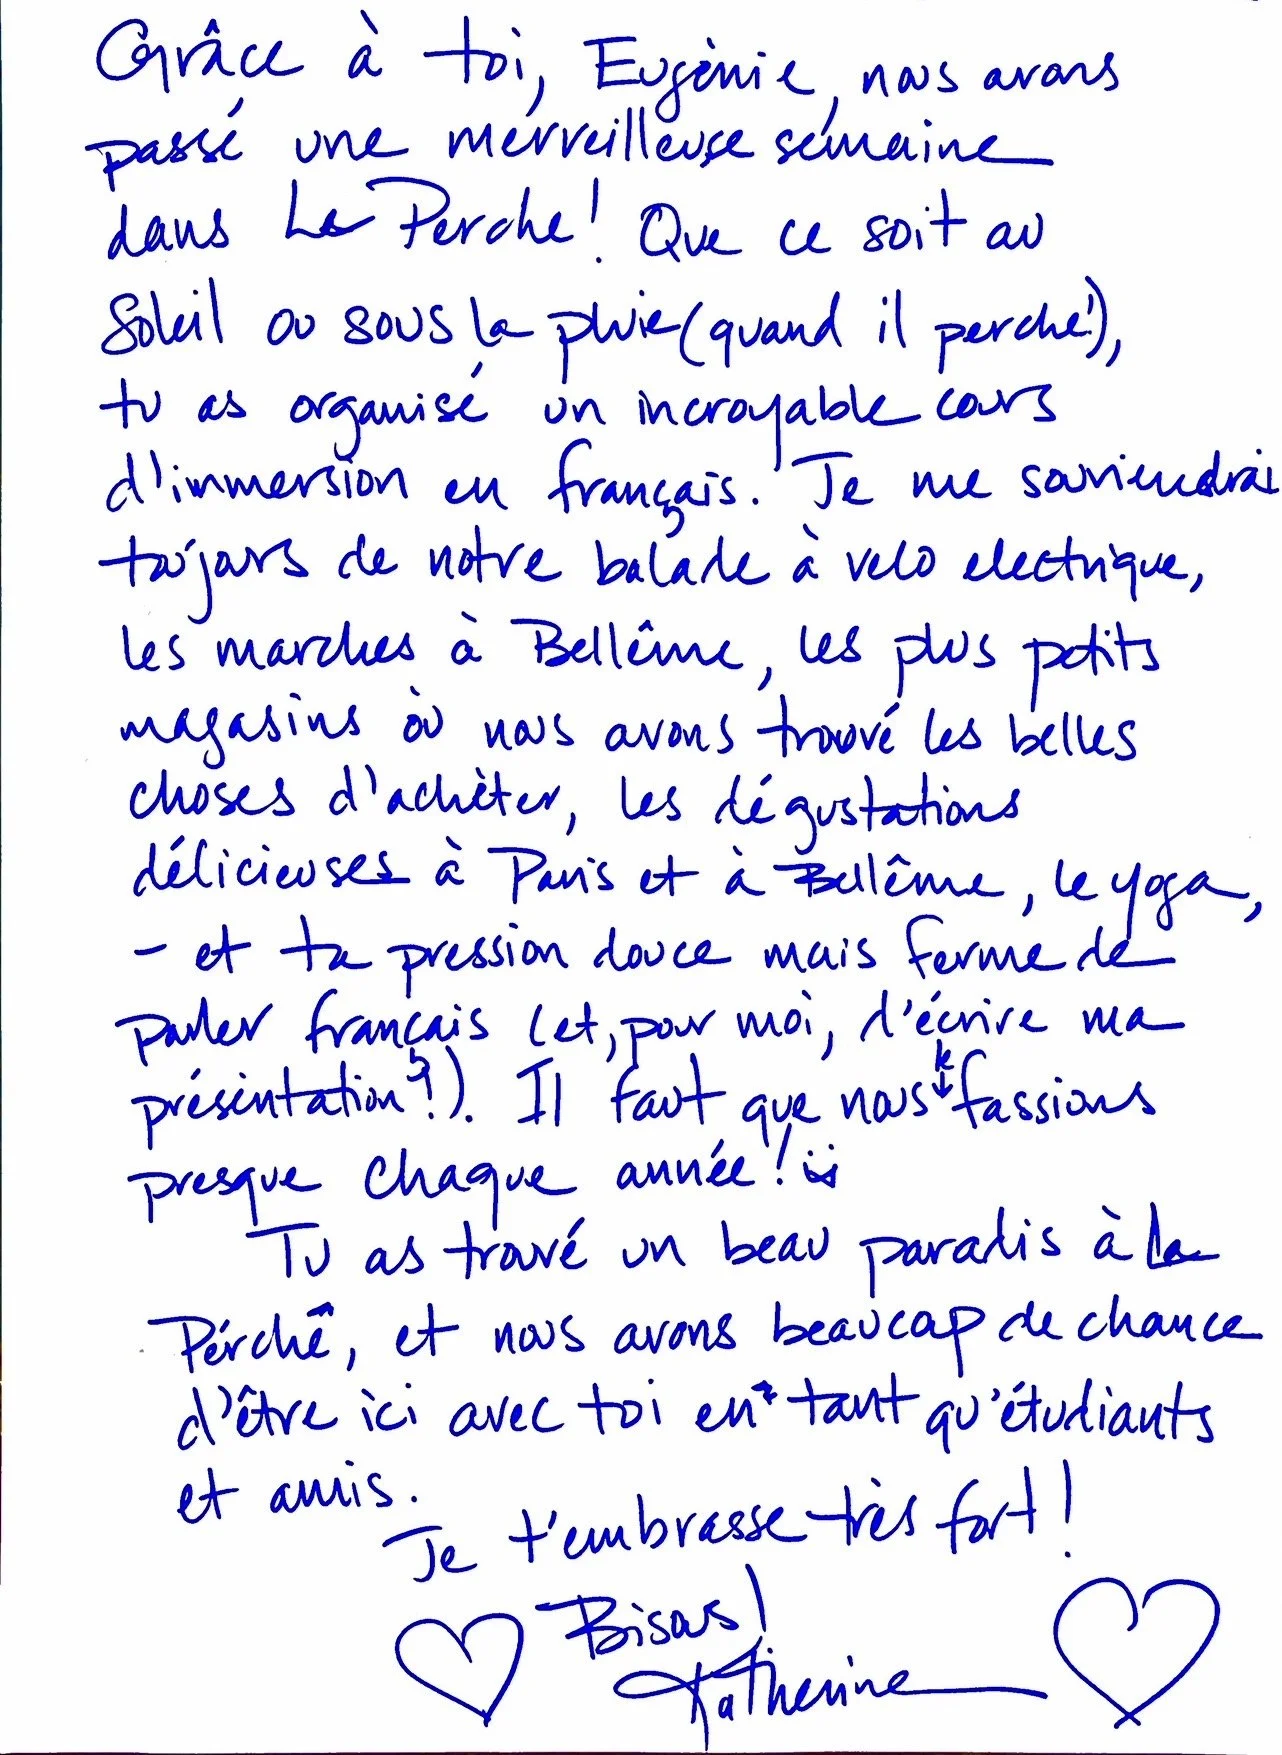 Grâce à toi, Eugènie, nous avons
passé une merveilleuse semaine
dans Le Perche! Que ce soit au
soleil ou sous la pluie (quand il perche!),
tu as organisé un incroyable cours
d'immersion en français. Je me souviendrai
toujours de notre balade à velo electrique,
les marches à Bellême, les plus petits
magasins où nous avons trouvé les belles
choses d'achèter, les dégustations
délicieuses à Paris et à Bellême, le yoga,
- et ta pression douce mais ferme de
parler français (et, pour moi, d'écrire ma
présentation!). Il faut que nous le fassions
presque chaque année!
Tu as trouvé un beau paradis à La
Pérchê, et nous avons beaucoup de chance
d'être ici avec toi en tant qu'étudiants
et amis.
Je t'embrasse très fort!
Bisous!
Katherine